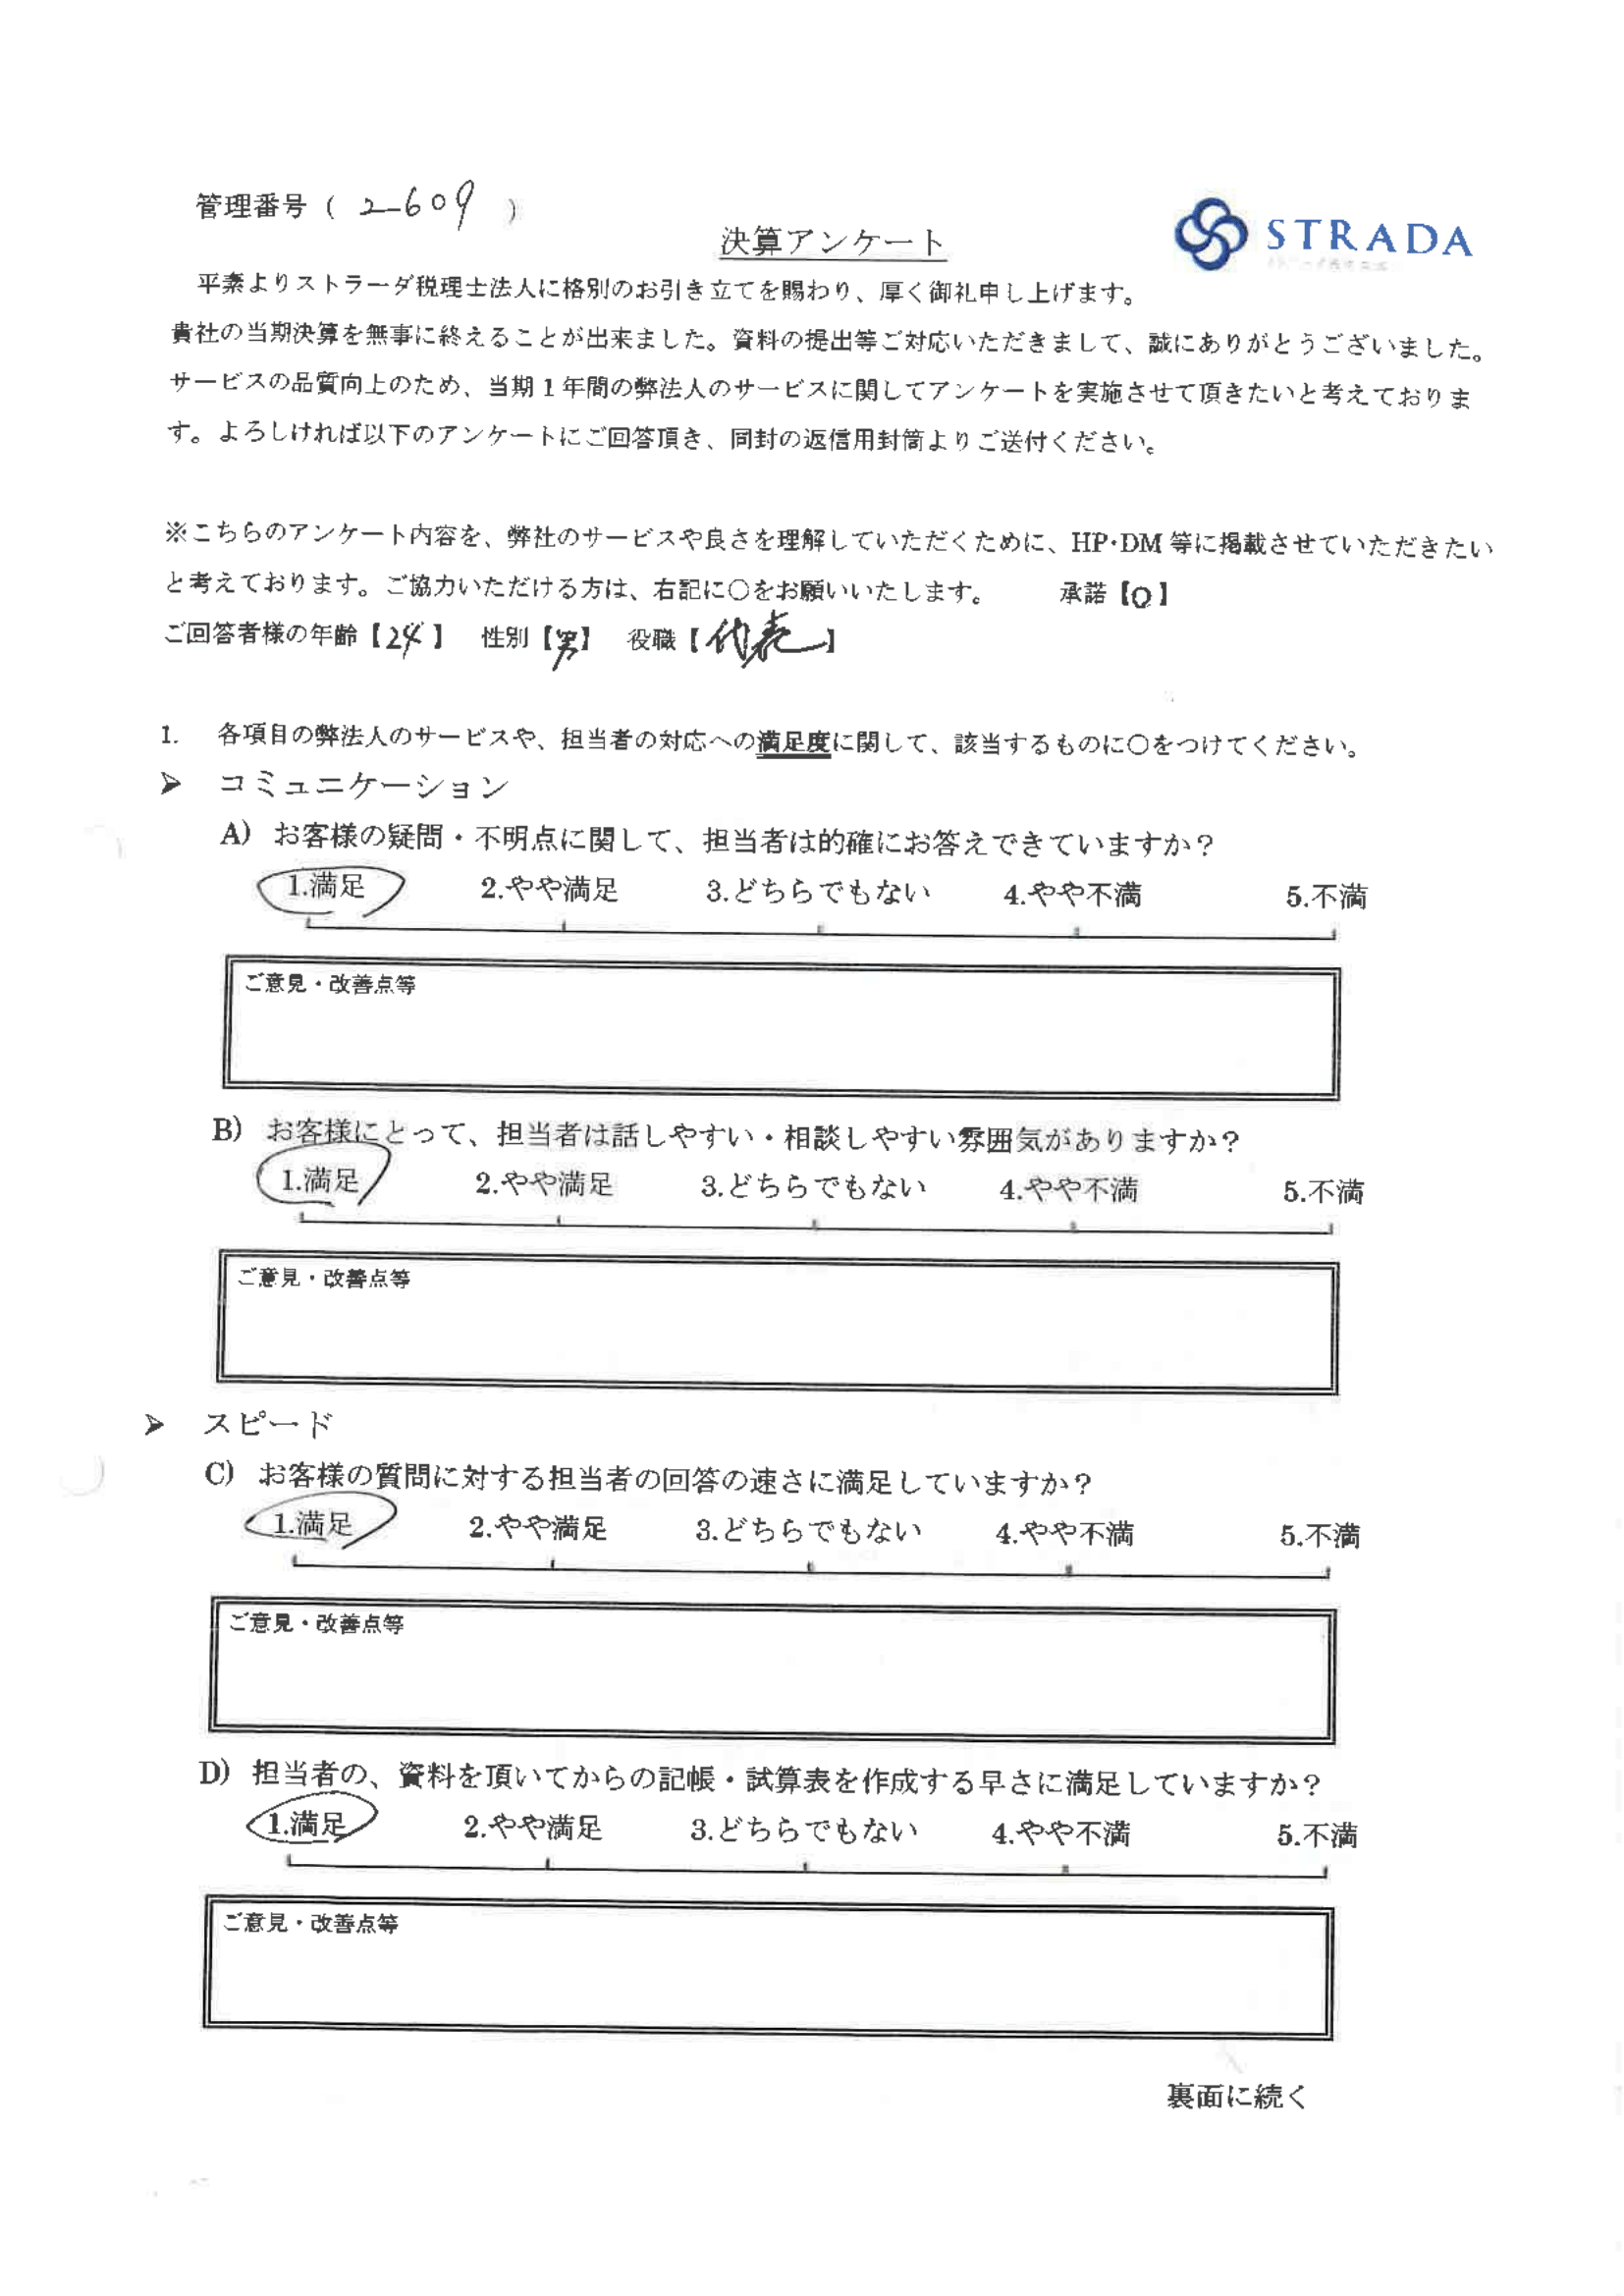 管理番号 ( 2-609 )
STRADA
決算アンケート
平素よりストラーダ税理士法人に格別のお引き立てを賜わり、厚く御礼申し上げます。
貴社の当期決算を無事に終えることが出来ました。資料の提出等ご対応いただきまして、誠にありがとうございました。
サービスの品質向上のため、当期1年間の弊法人のサービスに関してアンケートを実施させて頂きたいと考えておりま
す。よろしければ以下のアンケートにご回答頂き、同封の返信用封筒よりご送付ください。
※こちらのアンケート内容を、弊社のサービスや良さを理解していただくために、HP・DM 等に掲載させていただきたい
と考えております。ご協力いただける方は、右記に○をお願いいたします。 承諾【○】
ご回答者様の年齢【24】 性別【男】 役職【代表】
1. 各項目の弊法人のサービスや、担当者の対応への満足度に関して、該当するものに○をつけてください。
➢ コミュニケーション
A) お客様の疑問・不明点に関して、担当者は的確にお答えできていますか？
1.満足 2.やや満足 3.どちらでもない 4.やや不満 5.不満
ご意見・改善点等
B) お客様にとって、担当者は話しやすい・相談しやすい雰囲気がありますか？
1.満足 2.やや満足 3.どちらでもない 4.やや不満 5.不満
ご意見・改善点等
➢ スピード
C) お客様の質問に対する担当者の回答の速さに満足していますか？
1.満足 2.やや満足 3.どちらでもない 4.やや不満 5.不満
ご意見・改善点等
D) 担当者の、資料を頂いてからの記帳・試算表を作成する早さに満足していますか？
1.満足 2.やや満足 3.どちらでもない 4.やや不満 5.不満
ご意見・改善点等
裏面に続く